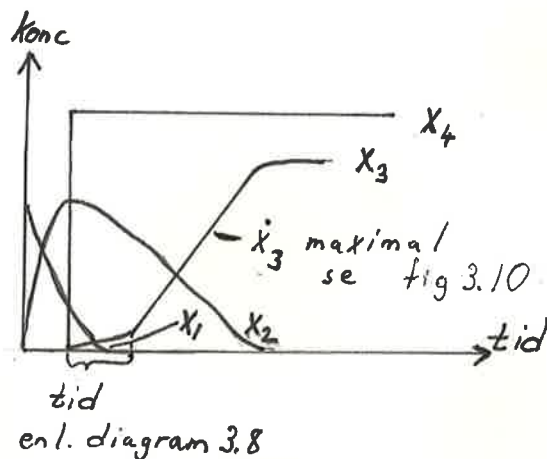 konc
X4
X3
ẋ3 maximal
se fig 3.10
X1
X2
tid
tid
enl. diagram 3.8